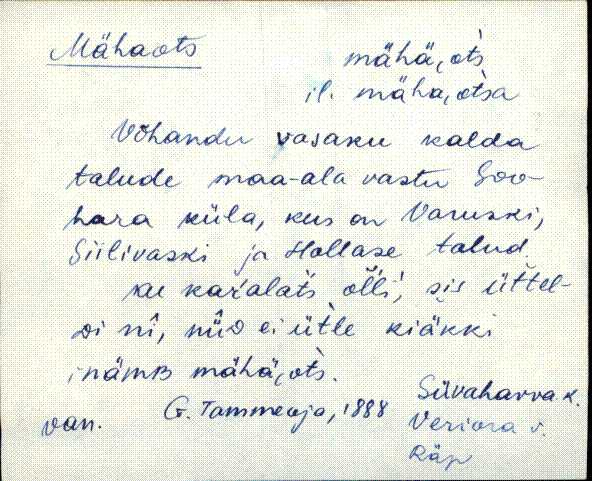 Mähaots
mähä,ot̀s
il. mäha,otsa
Võhandu vasaku kalda
talude maa-ala vastu Soo-
hara küla, kus on Varuski,
Siilivaski ja Hollase talud.
ku kaŕalat̀s ol̆li, sis üttel-
di nî, nüid ei ütle kiäkki
inämb mähä,ot̀s.
van. G. Tammeoja, 1888
Süvahavva k.
Veriora v.
Räp